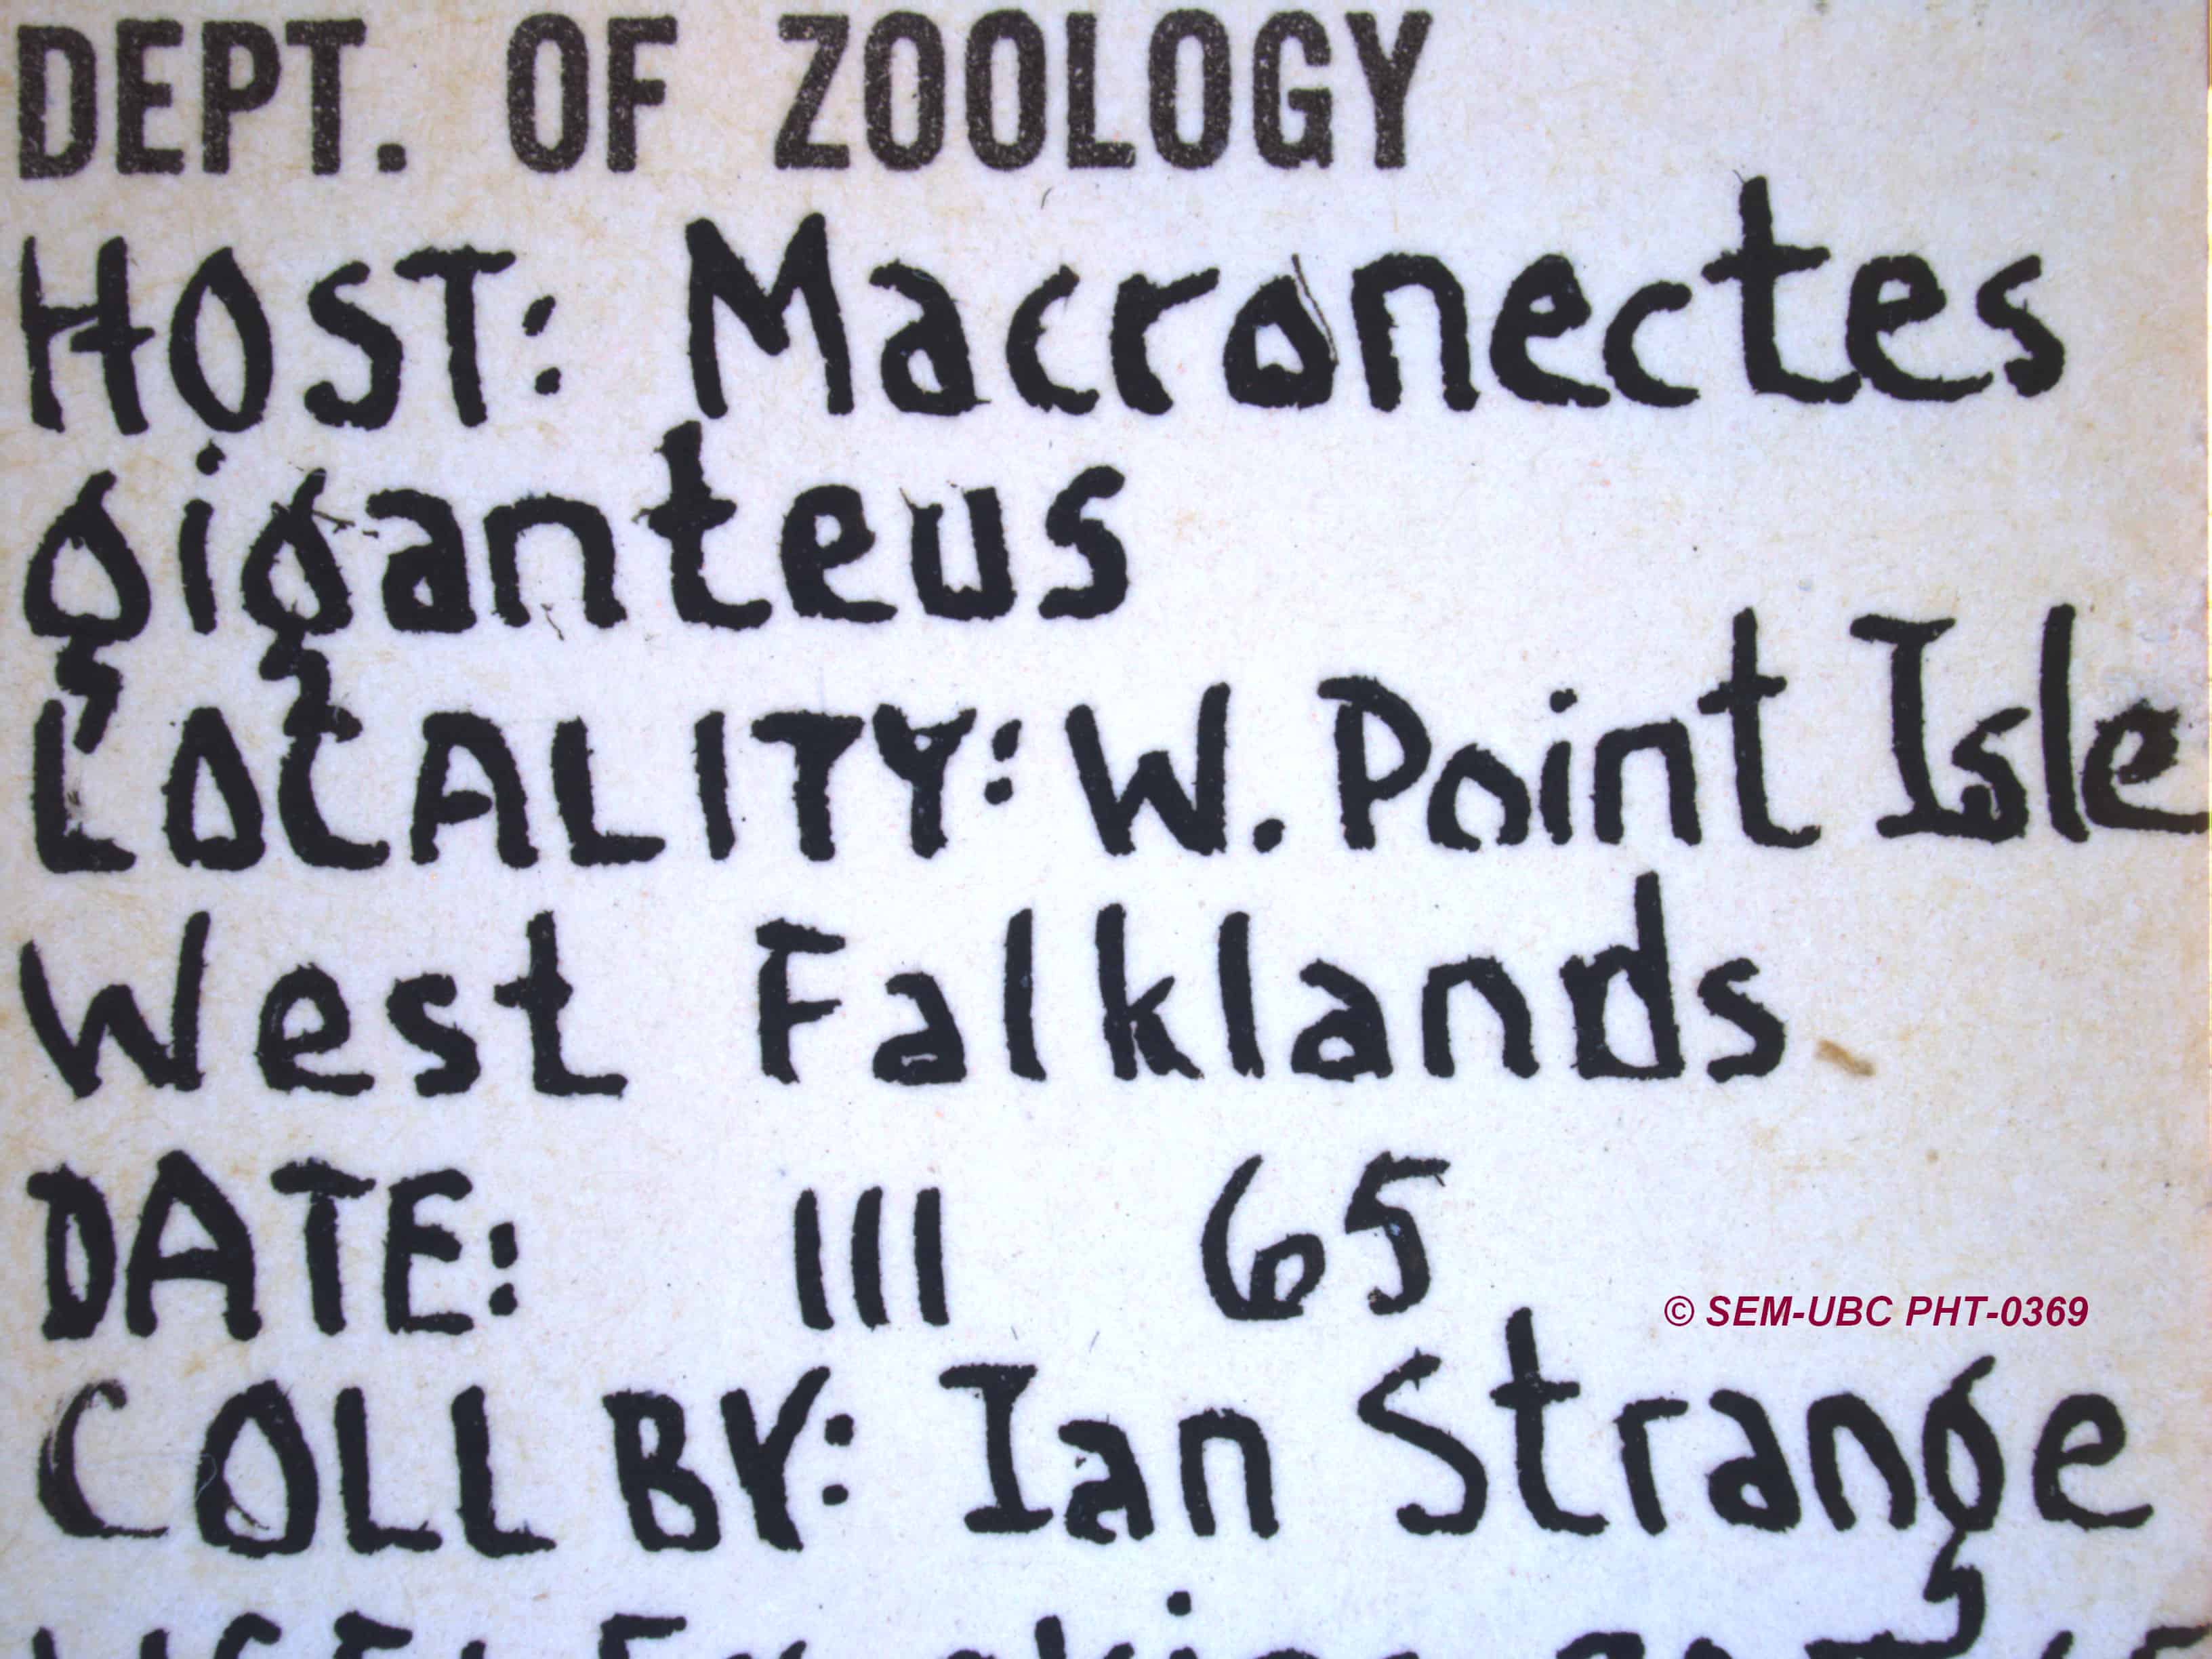 DEPT. OF ZOOLOGY
HOST: Macronectes
giganteus
LOCALITY: W. Point Isle
West Falklands
DATE: III 65
© SEM-UBC PHT-0369
COLL BY: Ian Strange